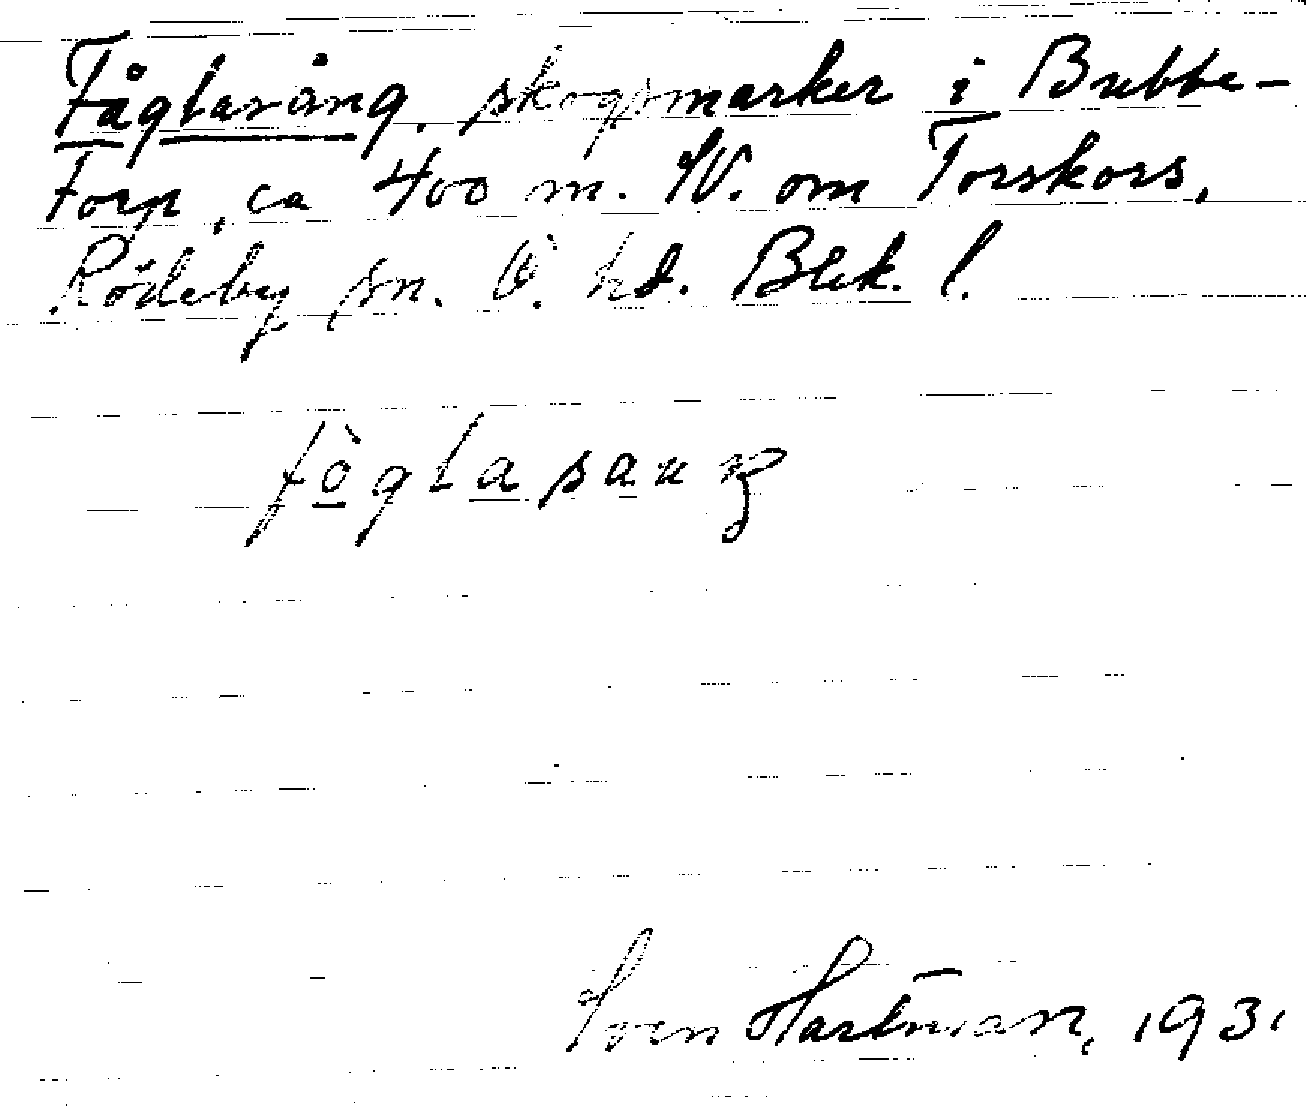 Fåglasång, skogsmarker i Bubbe-
torp, ca 400 m. SV. om Torskors,
Rödeby sn. Ö. hd. Blek. l.
fòglasaŋ
Sven Hartman, 1931